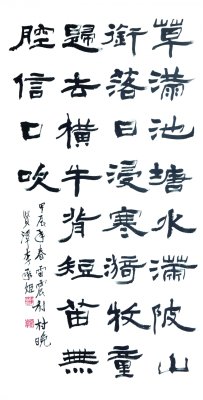 草滿池塘水滿陂山
銜落日浸寒漪牧童
歸去橫牛背短笛無
腔信口吹
甲辰年春雷震村晚